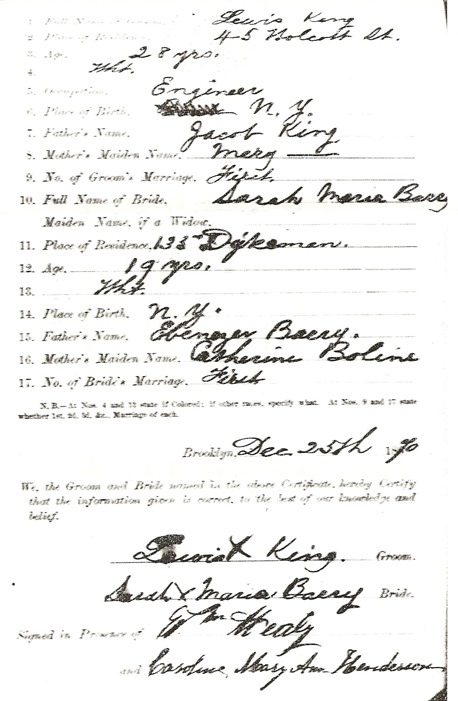 1. Full Name of Groom, Lewis King
2. Place of Residence, 45 Wolcott St.
3. Age, 28 yrs.
4. Wht.
5. Occupation, Engineer
6. Place of Birth, N. Y.
7. Father's Name, Jacob King
8. Mother's Maiden Name, Merg —
9. No. of Groom's Marriage, First
10. Full Name of Bride, Sarah Maria Baery
Maiden Name, if a Widow,
11. Place of Residence, 133 Dykeman.
12. Age, 19 yrs.
13. Wht.
14. Place of Birth, N. Y.
15. Father's Name, Ebenezer Baery.
16. Mother's Maiden Name, Catherine Boline
17. No. of Bride's Marriage, First
N. B.—At Nos. 4 and 13 state if Colored; if other races, specify what. At Nos. 9 and 17 state
whether 1st, 2d, 3d, &c., Marriage of each.
Brooklyn, Dec 25th 1890
We, the Groom and Bride named in the above Certificate, hereby Certify
that the information given is correct, to the best of our knowledge and
belief.
Lewis X King. Groom.
Sarah X Maria Baery Bride.
Signed in Presence of Wm Healy
and Caroline, Mary Ann Henderson